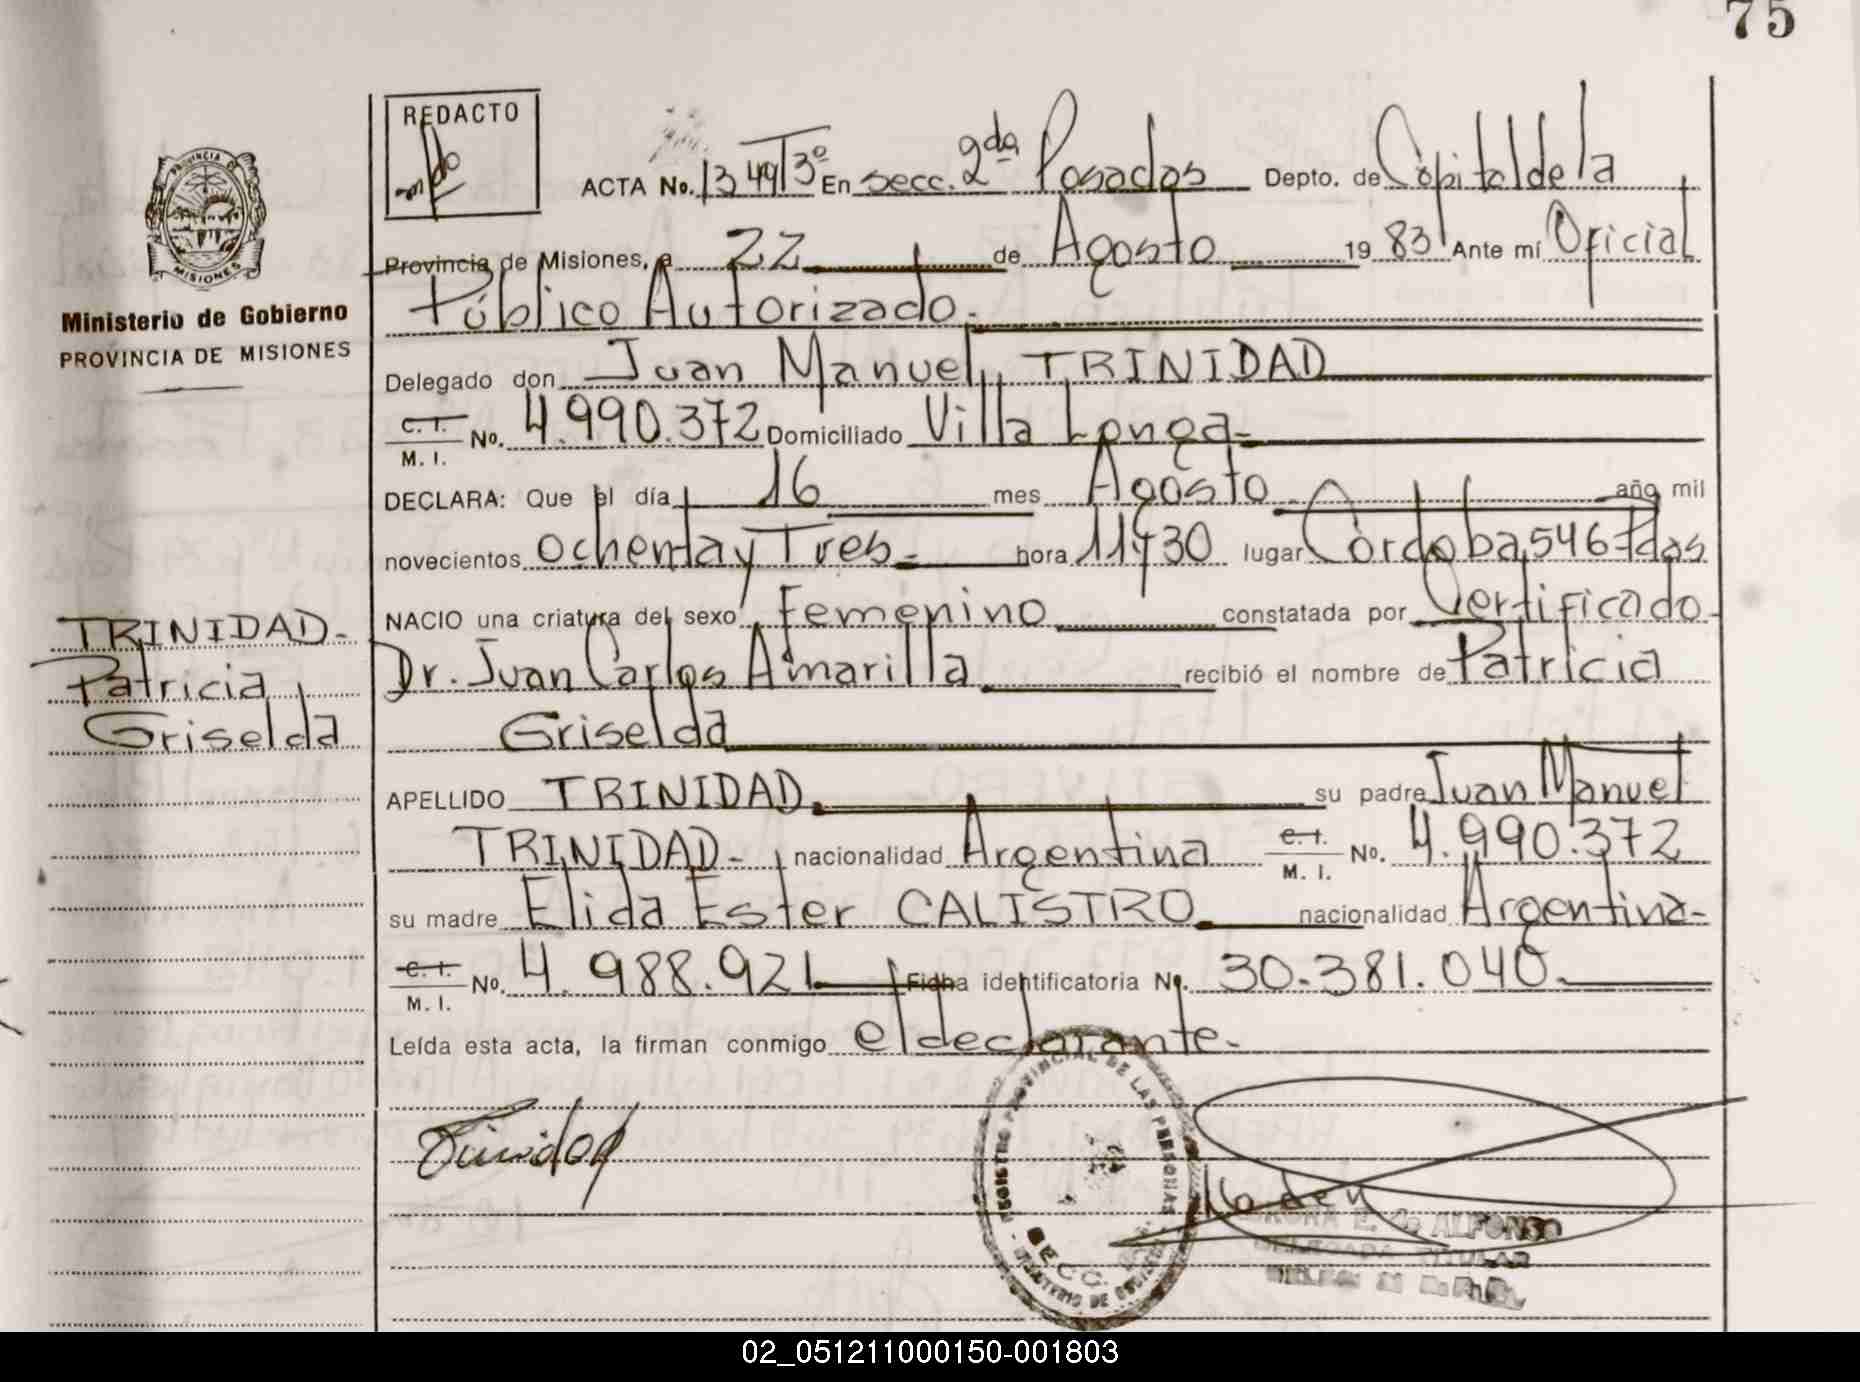 75
REDACTO
ACTA No. 1349 T3º En secc. 2da Posadas Depto. de Capital de la
Provincia de Misiones, a 22 de Agosto 1983 Ante mí Oficial
Público Autorizado.
Ministerio de Gobierno
PROVINCIA DE MISIONES
Delegado don Juan Manuel TRINIDAD
C. I.
M. I. No. 4.990.372 Domiciliado Villa Longa-
DECLARA: Que el día 16 mes Agosto año mil
novecientos ochenta y Tres- hora 11y30 lugar Córdoba 546 Pdas
NACIO una criatura del sexo Femenino constatada por Certificado-
Dr. Juan Carlos Amarilla recibió el nombre de Patricia
Griselda
TRINIDAD-
Patricia
Griselda
APELLIDO TRINIDAD su padre Juan Manuel
TRINIDAD- nacionalidad Argentina C. I.
M. I. No. 4.990.372
su madre Elida Ester CALISTRO nacionalidad Argentina-
C. I.
M. I. No. 4.988.921 Ficha identificatoria No. 30.381.040-
Leída esta acta, la firman conmigo el declarante.-
Trinidad
REGISTRO PROVINCIAL DE LAS PERSONAS
SECC.
MINISTERIO DE GOBIERNO
E. de ALFONSO
DELEGADA TITULAR
02_051211000150-001803